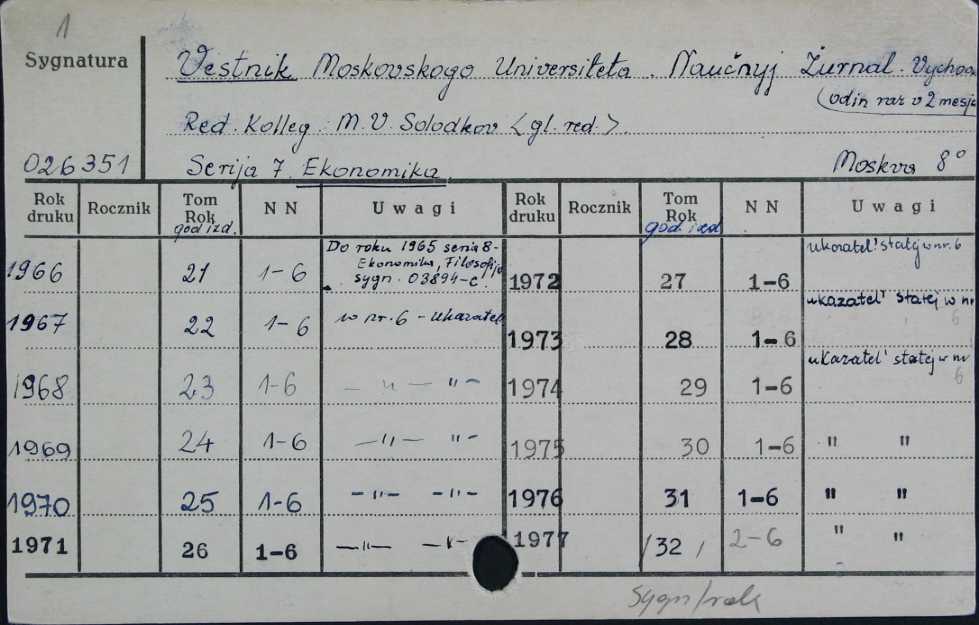 1
Sygnatura
Vestnik Moskovskogo Universiteta. Naučnyj Žurnal. Vychod
(odin raz v 2 mesja
Red. Kolleg. M. V. Solodkov <gl. red.>.
026351 Serija 7. Ekonomika. Moskva 8°
Rok druku Rocznik Tom Rok god izd. NN Uwagi Rok druku Rocznik Tom Rok god. izd NN Uwagi
1966 21 1-6 Do roku 1965 seria 8-Ekonomika, Filosofija sygn. 03894-c. 1972 27 1-6 ukazatel' statej w nr. 6
1967 22 1-6 w nr. 6 - Ukazatel 1973 28 1-6 ukazatel' statej w nr 6
1968 23 1-6 — „ — "- 1974 29 1-6 ukazatel' statej w nr 6
1969 24 1-6 —"— "- 1975 30 1-6 " "
1970 25 1-6 -"- -"- 1976 31 1-6 " "
1971 26 1-6 —"— —"— 1977 /32/ 2-6 " "
Sygn/rok